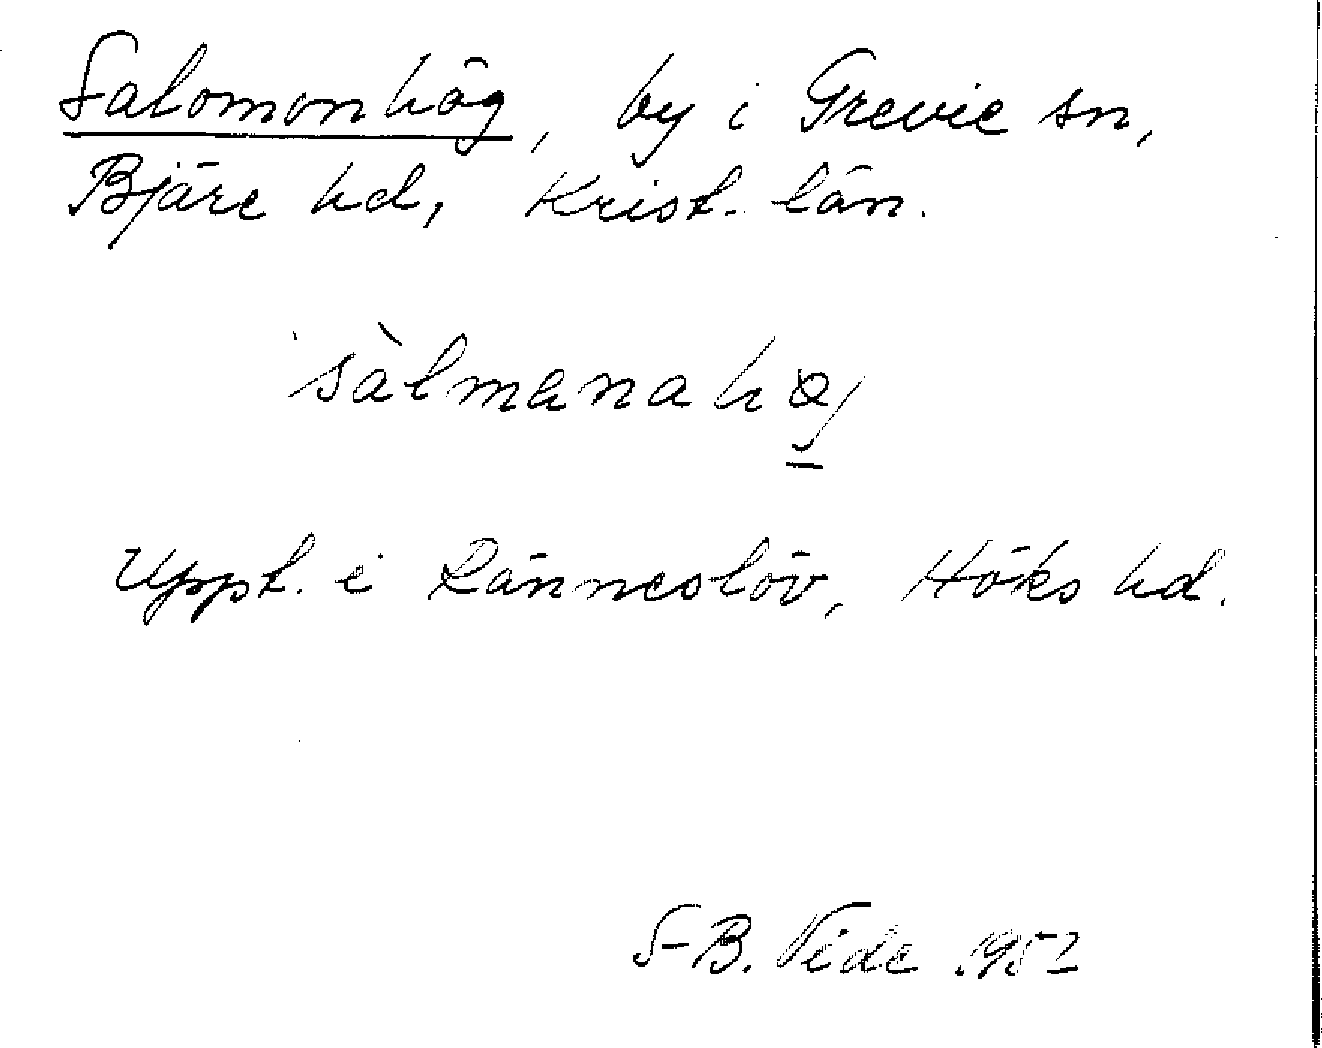 Salomonhög, by i Grevie sn,
Bjäre hd, Krist. län.
sàlmanahø̱
Uppt. i Ränneslöv, Höks hd.
S-B. Vide 1952